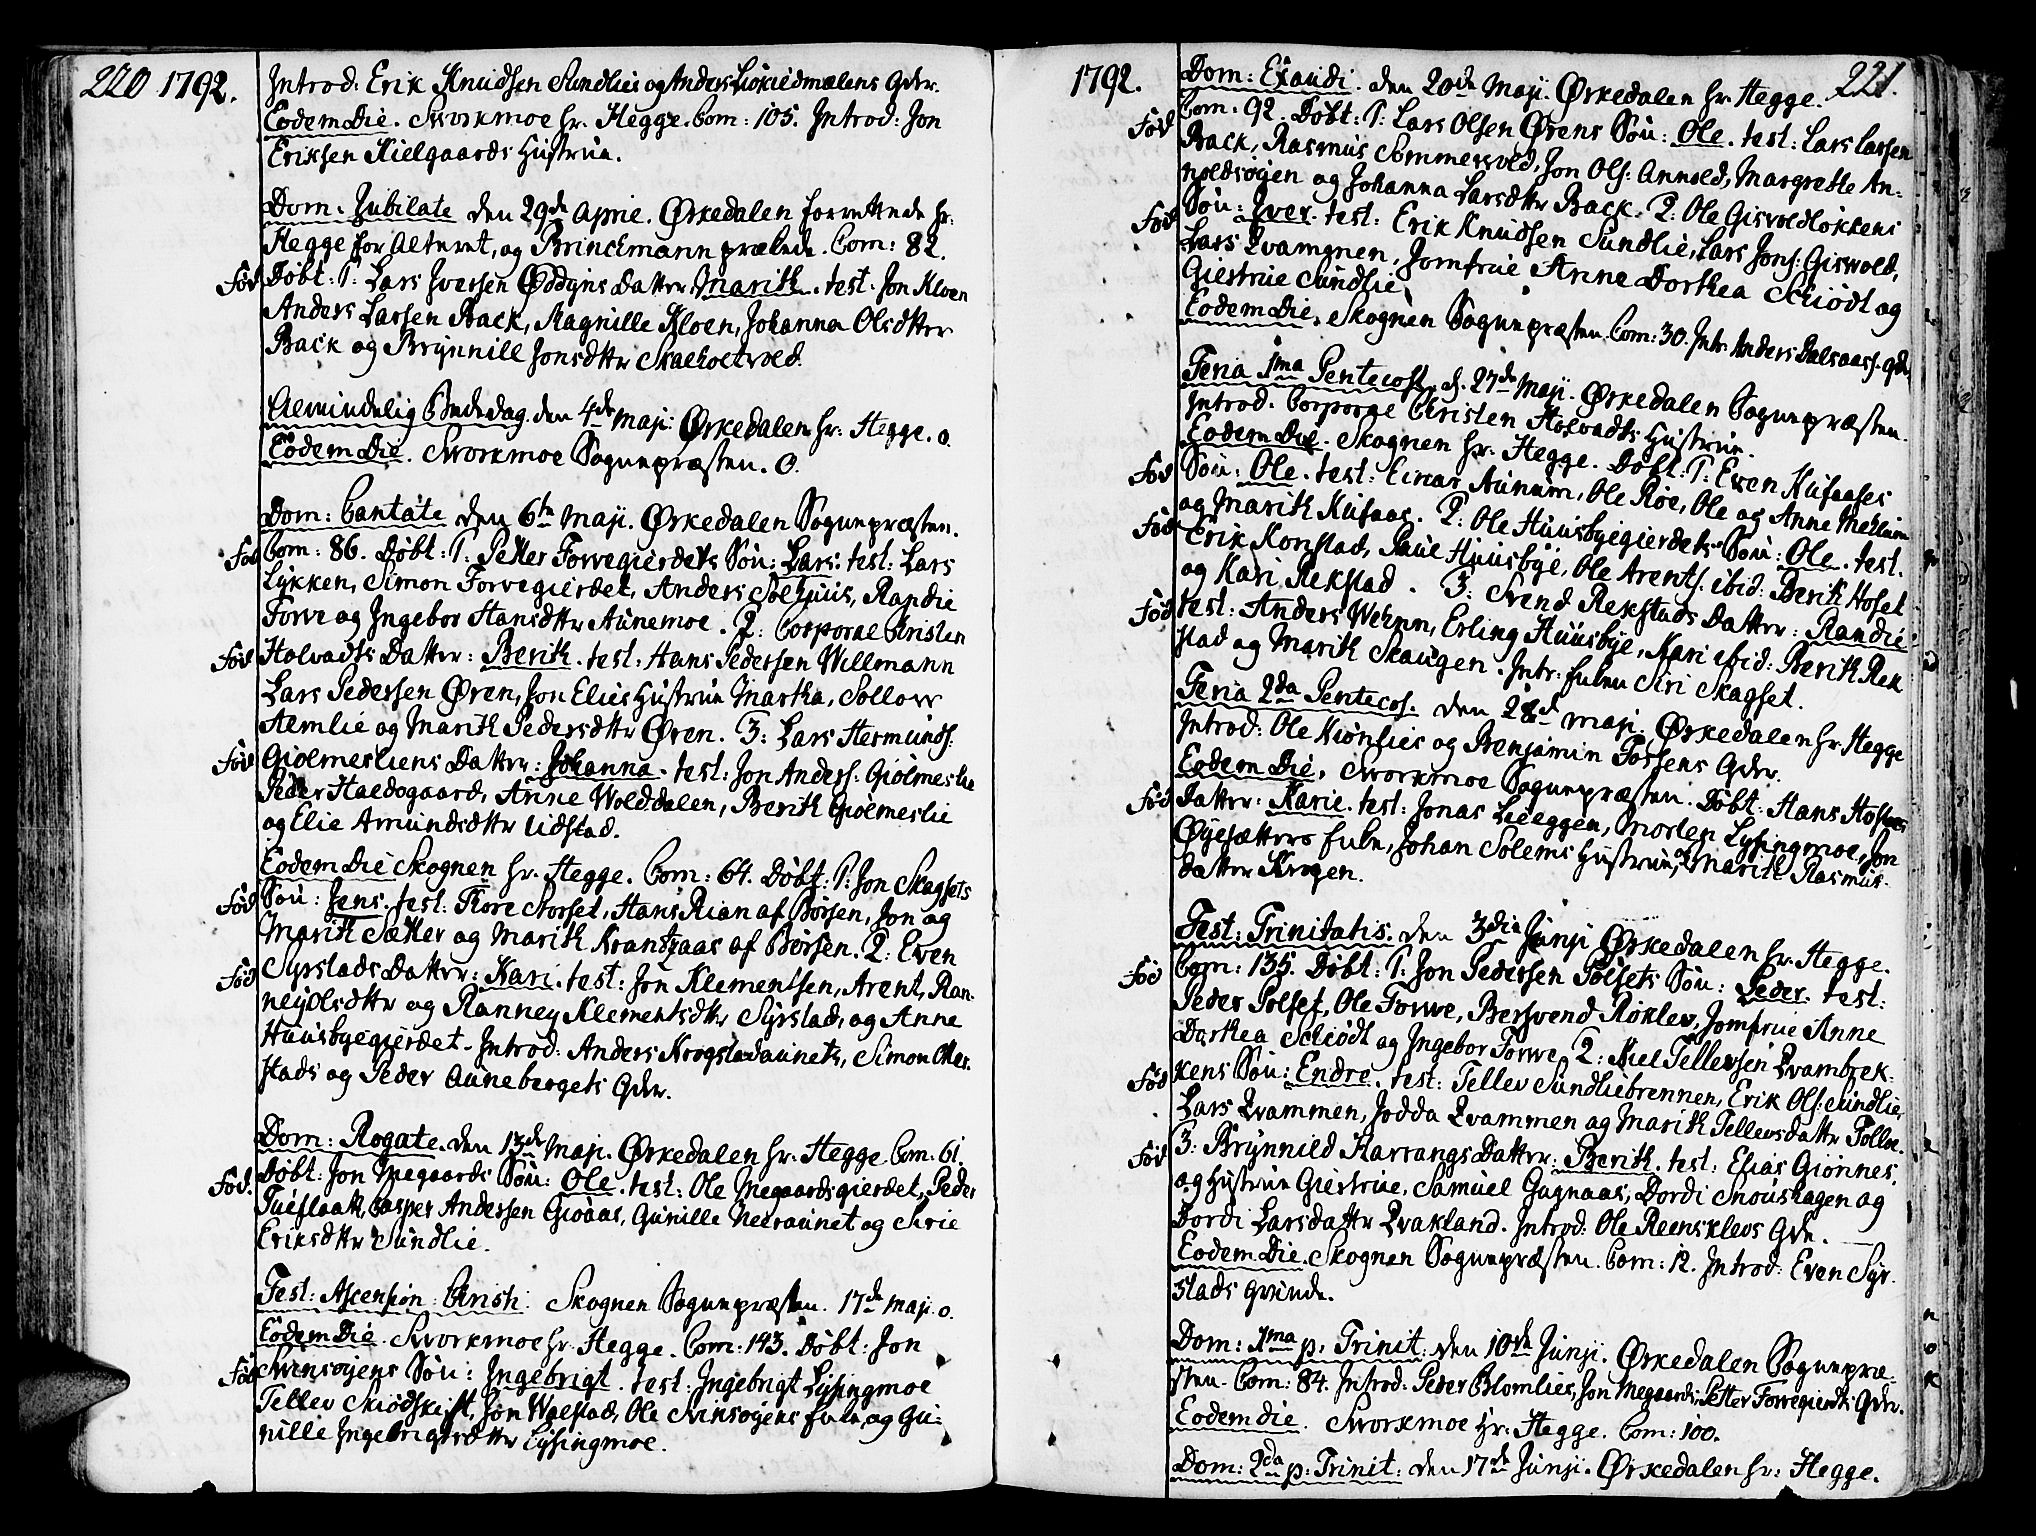 220 1792.
Introd: Erik Knudsen Sundlies og Anders Løkiedmælens Qdr.
Eodem Die. Sworkmoe hr. Hegge. Com: 105. Introd: Jon
Eriksen Kielgaards Hustrue.
Dom. Jubilate den 29de April. Ørkedalen forrettende hr:
Hegge for Alteret, og Brinckmann prækede. Com: 82.
Fød Døbt: 1: Lars Iversen Øddyns Datter Marith. test. Jon Kloen
Anders Larsen Back, Ragnille Kloen, Johanna Olsdttr
Back og Brynnill Jonsdttr Skalholtvold.
Almindelig Bededag den 4de Maji Ørkedalen hr: Hegge. 0.
Eodem Die. Sworkmoe Sognepræsten. 0.
Dom: Cantate den 6te Maji. Ørkedalen Sognepræsten.
Fød Com: 86. Døbt: 1: Petter Forvegierdets Søn: Lars: test: Lars
Lykken, Simon Forvegierdet, Anders Solhuus, Randie
Forve og Ingebor Hansdttr Aunemoe. 2: Corporal Christen
Fød Holvadts Datter: Berith. test: Hans Pedersen Willmann
Lars Pedersen Øren, Jon Elies Hustrue Martha, Sollow
Aemlie og Marith Pedersdttr Øren. 3: Lars Hermunds:
Fød Giolmesliens Datter: Johanna. test: Jon Anders: Giolmeslie
Peder Haedogaard, Anne Wolddalen, Berith Giolmeslie
og Elie Amundsdttr Udstad.
Eodem Die Skognen hr. Hegge. Com: 64. Døbt: 1: Jon Skagsets
Fød Søn: Jens. test: Tore Norset, Hans Rian af Børsen, Jon og
Marith Sætter og Marith Krantzaas af Børsen. 2: Even
Fød Syrstads Datter: Kari. test: Jon Klementsen, Arent, Ran-
ney Olsdttr og Ranney Klementsdttr Syrstad, og Anne
Huusbyegierdet. Introd: Anders Krogstadaunets, Simon Oller-
stads og Peder Aunebergets Qdr.
Dom: Rogate. den 13de Maji. Ørkedalen hr. Hegge Com: 61.
Fød. Døbt: Jon Megaards Søn: Ole. test: Ole Megaardsgierdet, Peder
Tuefloatt, Casper Andersen Gioaas, Gunille Nerraunet og Sirie
Eriksdttr Sundlie.
Fest: Ascension: Christi. Skognen Sognepræsten. 17de Maji. 0.
Eodem Die. Sworkmoe hr. Hegge. Com: 143. Døbt: Jon
Fød Svinsøjens Søn: Ingebrigt. test: Ingebrigt Lysingmoe
Tellev Skiødskift, Jon Walstad, Ole Svinsøyens fuln, og Gu-
nille Ingebrigtsdttr Lysingmoe.
1792. 221.
Dom: Exaudi. den 20de Maji. Ørkedalen hr. Hegge.
Fød Com: 92. Døbt: 1: Lars Olsen Ørens Søn: Ole. test: Lars Larsen
Back, Rasmus Sommersvold, Jon Ols: Annold, Margrette An-
noldsøjen og Johanna Larsdttr Back. 2: Ole Gisvoldløkkens
Fød Søn: Iver. test: Erik Knudsen Sundlie, Lars Jons: Giswold,
Lars Qvamgnen, Jomfrue Anne Dorthea Schiødt og
Giertrue Sundlie.
Eodem Die. Skognen Sognepræsten. Com: 30. Intr: Anders Dalsaass. Qdr.
Feria 1ma Pentecost. d. 27de Maji. Ørkedalen Sognepræsten.
Introd. Corporal Christen Holvadts Hustrue.
Eodem Die. Skognen hr. Hegge. Døbt: 1: Even Kufaases
Fød Søn: Ole. test: Einar Aunum, Ole Roe, Ole og Anne Mehlum
og Marith Kufaas. 2: Ole Huusbyegierdets Søn: Ole. test.
Fød Erik Konstad, Paul Huusbye, Ole Arents. ibid: Berith Hoset
og Kari Rekstad. 3: Svend Rekstads Datter: Randie
Fød test: Anders Wehnn, Erling Huusbye, Kari ibid: Berith Rek-
stad og Marith Skaugen. Intr: fuln Siri Skagset.
Feria 2da Pentecos. den 28de Maji. Ørkedalen hr Hegge
Introd: Ole Kiønlies og Benjamin Fossens Qdr.
Eodem Die. Sworkmoe Sognepræsten. Døbt: Hans Hoftoes
Fød Datter: Karie. test: Jonas Lieeggen, Morten Lysingmoe, Jon
Øyesætters fuln, Johan Solems Hustrue, og Marith Rasmus-
datter Krogen.
Fest: Trinitatis. den 3die Junji Ørkedalen hr. Hegge.
Fød Com: 135. Døbt: 1: Jon Pedersen Polsets Søn: Peder. test:
Peder Polset, Ole Forve, Bersvend Roklev, Jomfrue Anne
Dorthea Schiødt og Ingebor Forve. 2: Kiel Tellevsen Qvambek-
Fød kens Søn: Endre. test: Tellev Sundliebrennen, Erik Ols: Sundlie,
Lars Qvammen, Jodda Qvammen og Marith Tellevsdattr Follæ.
Fød 3: Brynnild Karrangs Datter: Berith. test: Elias Giønnes,
og Hustrue Giertrue, Samuel Gagnaas, Dordi Snoushagen og
Dordi Larsdattr Qvakland. Introd: Ole Reensklevs Qdr.
Eodem Die. Skognen Sognepræsten. Com: 12. Introd: Even Syr-
stads Qvinde.
Dom: 1ma p. Trinit: den 10de Junji. Ørkedalen Sognepræ-
sten. Com: 84. Introd: Peder Blomlies, Jon Megaards, Petter Forvegierdts Qdr.
Eodem die. Sworkmoe Hr: Hegge. Com: 100.
Dom: 2da p: Trinit: den 17de Junji. Ørkedalen hr: Hegge.